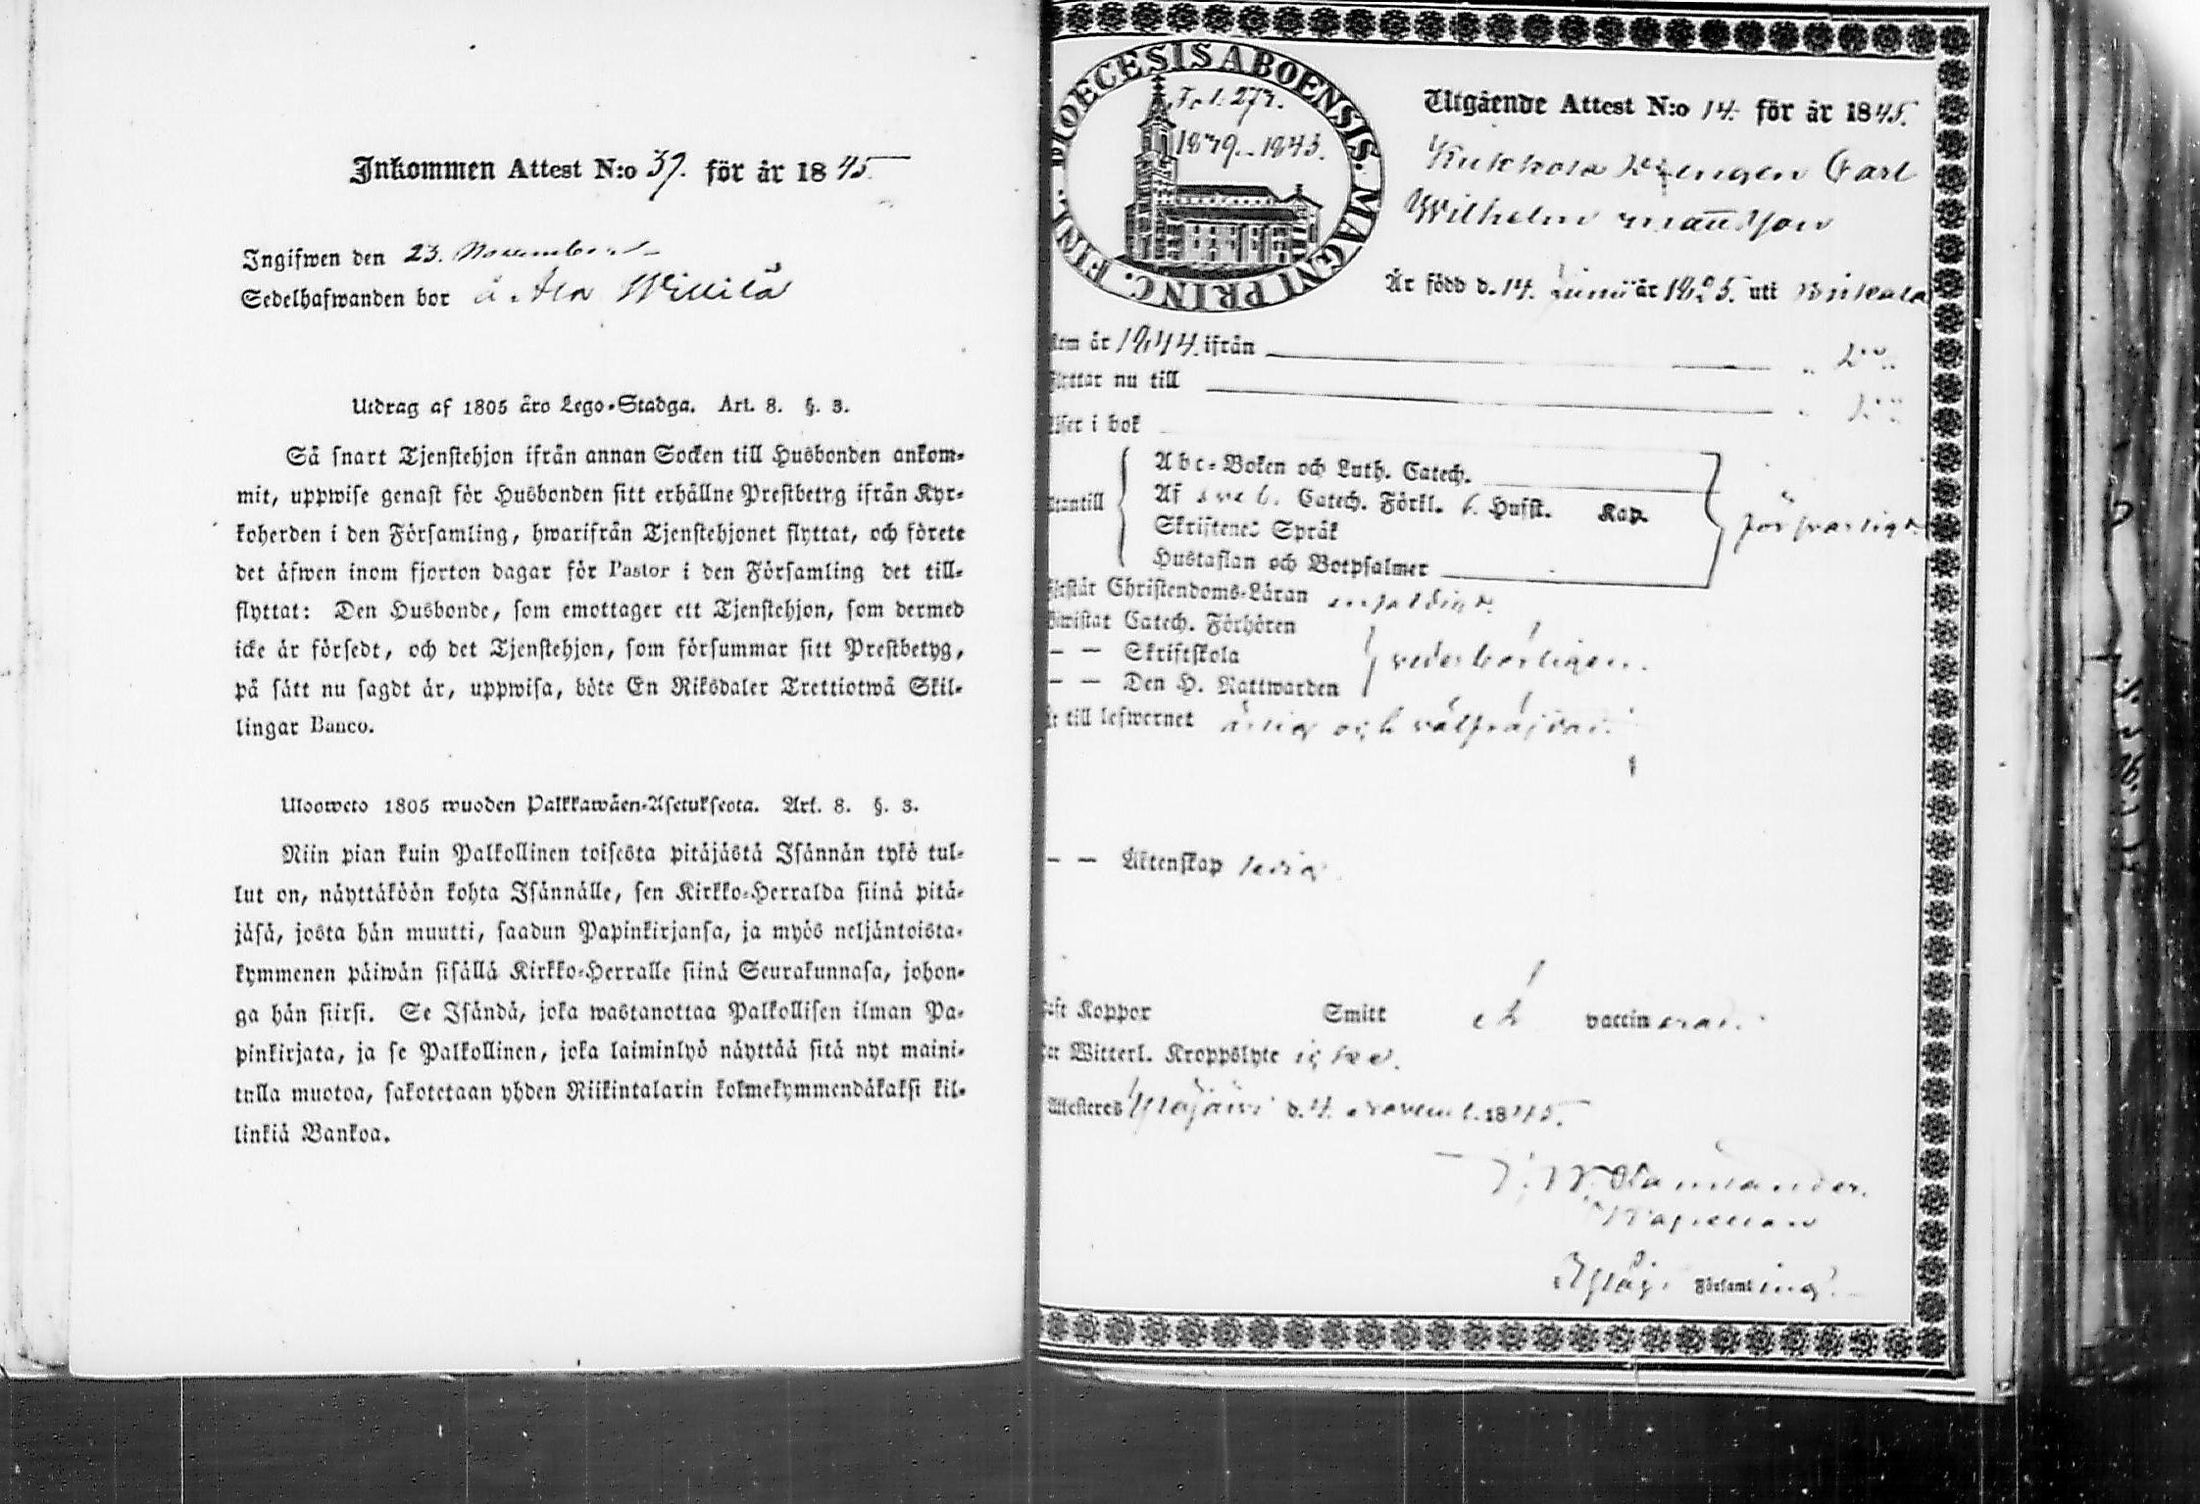 Inkommen Attest N:o 37. för år 1845.
Ingifwen den 23. November
Sedelhafwanden bor å Ala Willilä
Utdrag af 1805 års Lego-Stadga. Art. 8. §. 3.
Så snart Tjenstehjon ifrån annan Socken till Husbonden ankom-
mit, uppwise genast för Husbonden sitt erhållne Prestbetyg ifrån Kyr-
koherden i den Församling, hwarifrån Tjenstehjonet flyttat, och förete
det äfwen inom fjorton dagar för Pastor i den Församling det till-
flyttat: Den Husbonde, som emottager ett Tjenstehjon, som dermed
icke är försedt, och det Tjenstehjon, som försummar sitt Prestbetyg,
på sätt nu sagdt är, uppwisa, böte En Riksdaler Trettiotwå Skil-
lingar Banco.
Ulosweto 1805 wuoden Palkkawäen-Asetuksesta. Art. 8. §. 3.
Niin pian kuin Palkollinen toisesta pitäjästä Isännän tykö tul-
lut on, näyttäköön kohta Isännälle, sen Kirkko-Herralda siinä pitä-
jäsä, josta hän muutti, saadun Papinkirjansa, ja myös neljäntoista-
kymmenen päiwän sisällä Kirkko-Herralle siinä Seurakunnasa, johon-
ga hän siirsi. Se Isändä, joka wastanottaa Palkollisen ilman Pa-
pinkirjata, ja se Palkollinen, joka laiminlyö näyttää sitä nyt maini-
tulla muotoa, sakotetaan yhden Riikintalarin kolmekymmendäkaksi kil-
linkiä Bankoa.
DIOECESIS ABOENSIS. MAGNI PRINC. FINL.
Fol. 273.
1839-1845.
Utgående Attest N:o 14. för år 1845.
Kukkola Drengen Carl
Wilhelm Mattsson
Är född d. 14. Junii år 1825. uti Birkala
kom år 1844. ifrån
flyttar nu till
läser i bok
utantill
Abc-Boken och Luth. Catech.
Af Sveb. Catech. Förkl. 6. Hufst. Kap.
Skriftenes Språk
Hustaflan och Botpsalmer
försvarligt.
förstår Christendoms-Läran enfaldigt.
bewistat Catech. Förhören
— — Skriftskola
— — Den H. Nattwarden
vederbörligen.
är till lefwernet ärlig och välfräjdad.
— — Äktenskap ledig.
haft Koppor Smitt eller vaccinerad.
har Witterl. Kroppslyte icke.
Attesteres Ylöjärvi d. 4. Novemb. 1845.
Kapellan
Ylöj. Församling.